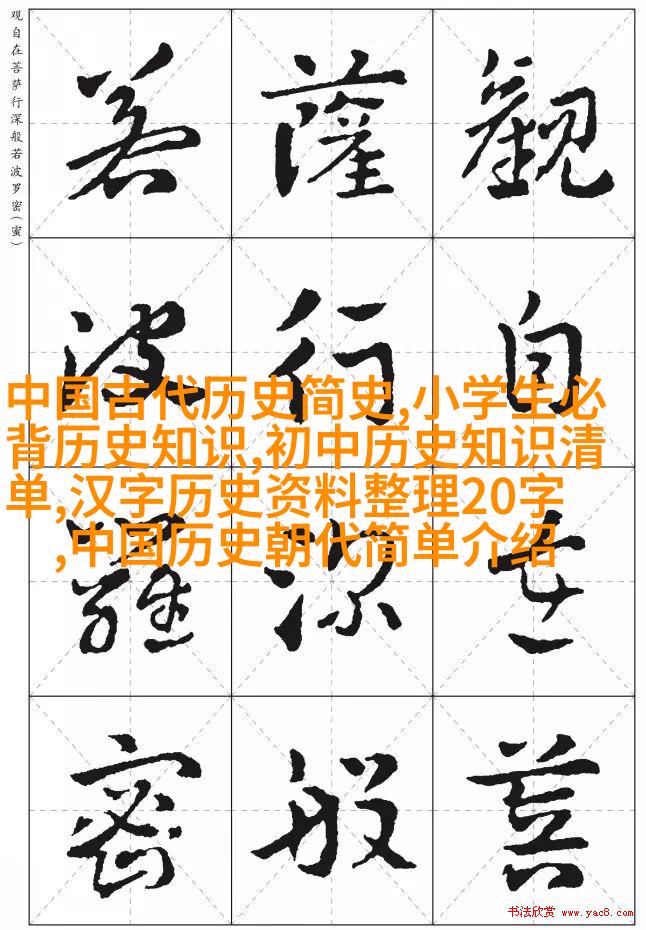 观自在菩萨行深般若波罗密(蜜)
觀自在菩
薩行深般
若波羅密
中国古代历史简史,小学生必
背历史知识,初中历史知识清
单,汉字历史资料整理20字
,中国历史朝代简单介绍
书法欣赏 www.yac8.com